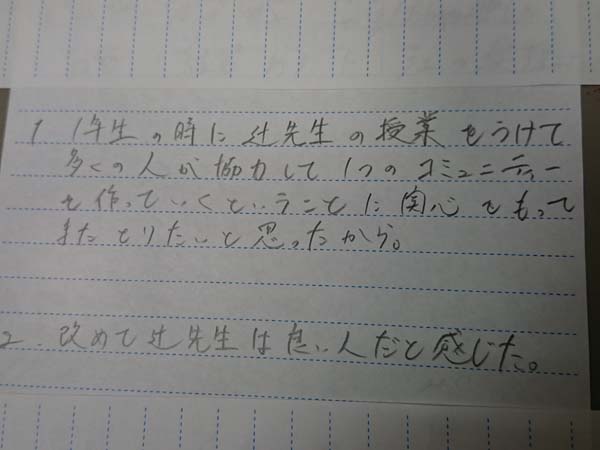 1 1年生の時に辻先生の授業をうけて
多くの人が協力して1つのコミュニティー
を作っていくということに関心をもって
またとりたいと思ったから。
2. 改めて辻先生は良い人だと感じた。